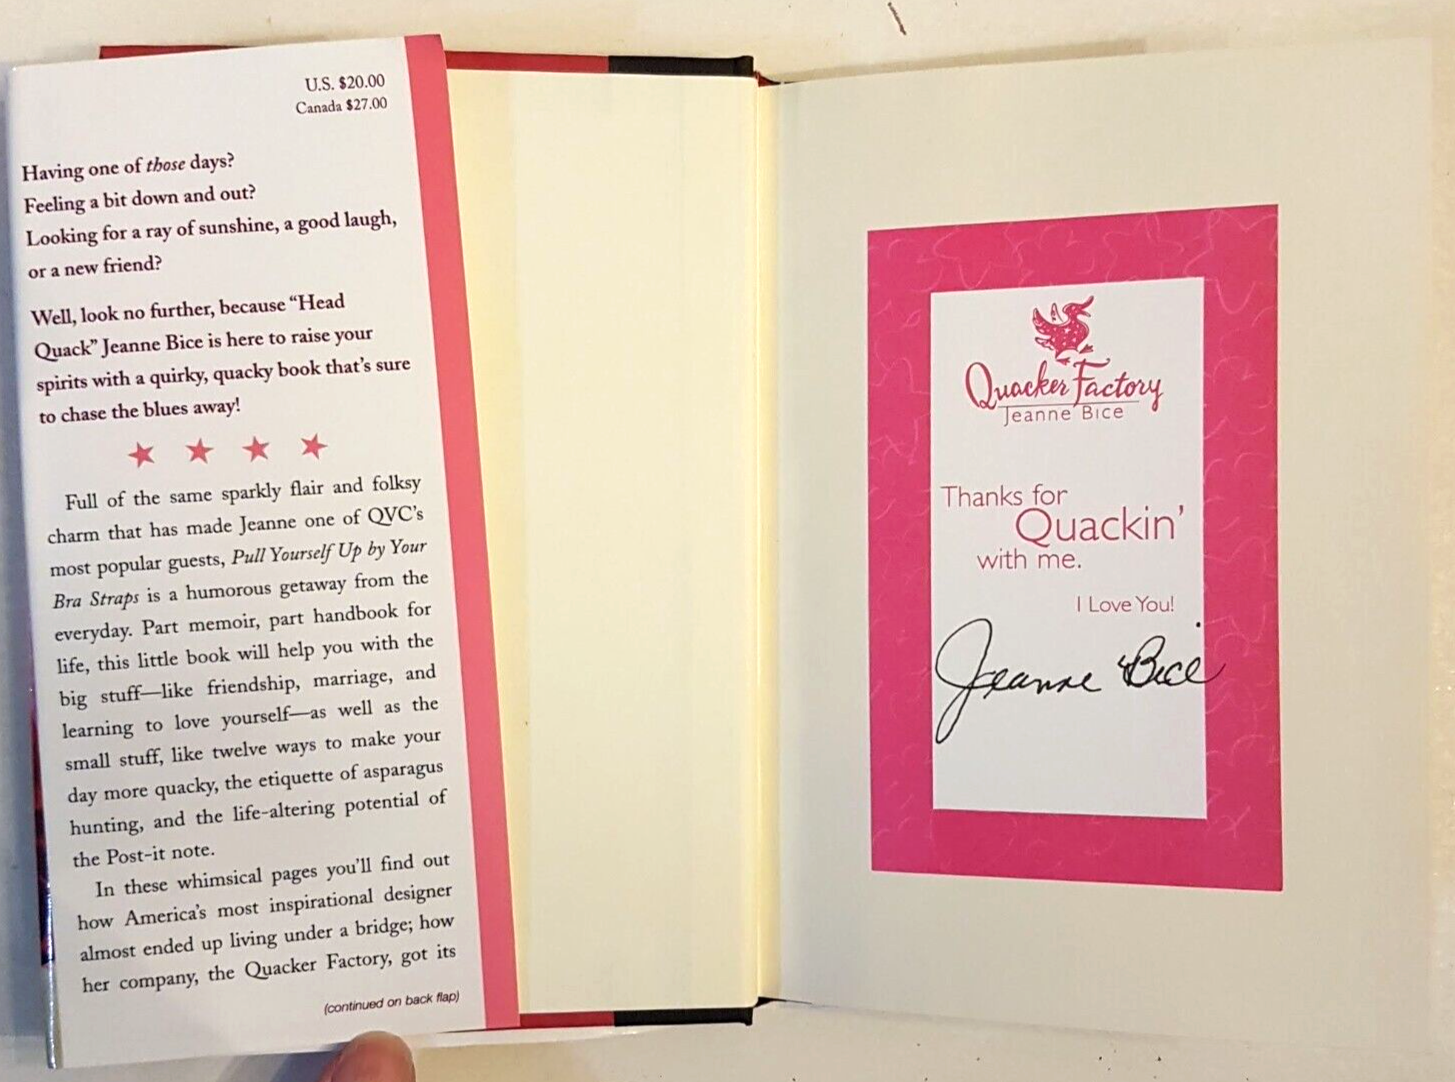 U.S. $20.00
Canada $27.00
Having one of those days?
Feeling a bit down and out?
Looking for a ray of sunshine, a good laugh,
or a new friend?
Well, look no further, because “Head
Quack” Jeanne Bice is here to raise your
spirits with a quirky, quacky book that’s sure
to chase the blues away!
Full of the same sparkly flair and folksy
charm that has made Jeanne one of QVC’s
most popular guests, Pull Yourself Up by Your
Bra Straps is a humorous getaway from the
everyday. Part memoir, part handbook for
life, this little book will help you with the
big stuff—like friendship, marriage, and
learning to love yourself—as well as the
small stuff, like twelve ways to make your
day more quacky, the etiquette of asparagus
hunting, and the life-altering potential of
the Post-it note.
In these whimsical pages you’ll find out
how America’s most inspirational designer
almost ended up living under a bridge; how
her company, the Quacker Factory, got its
(continued on back flap)
Quacker Factory
Jeanne Bice
Thanks for
Quackin’
with me.
I Love You!
Jeanne Bice